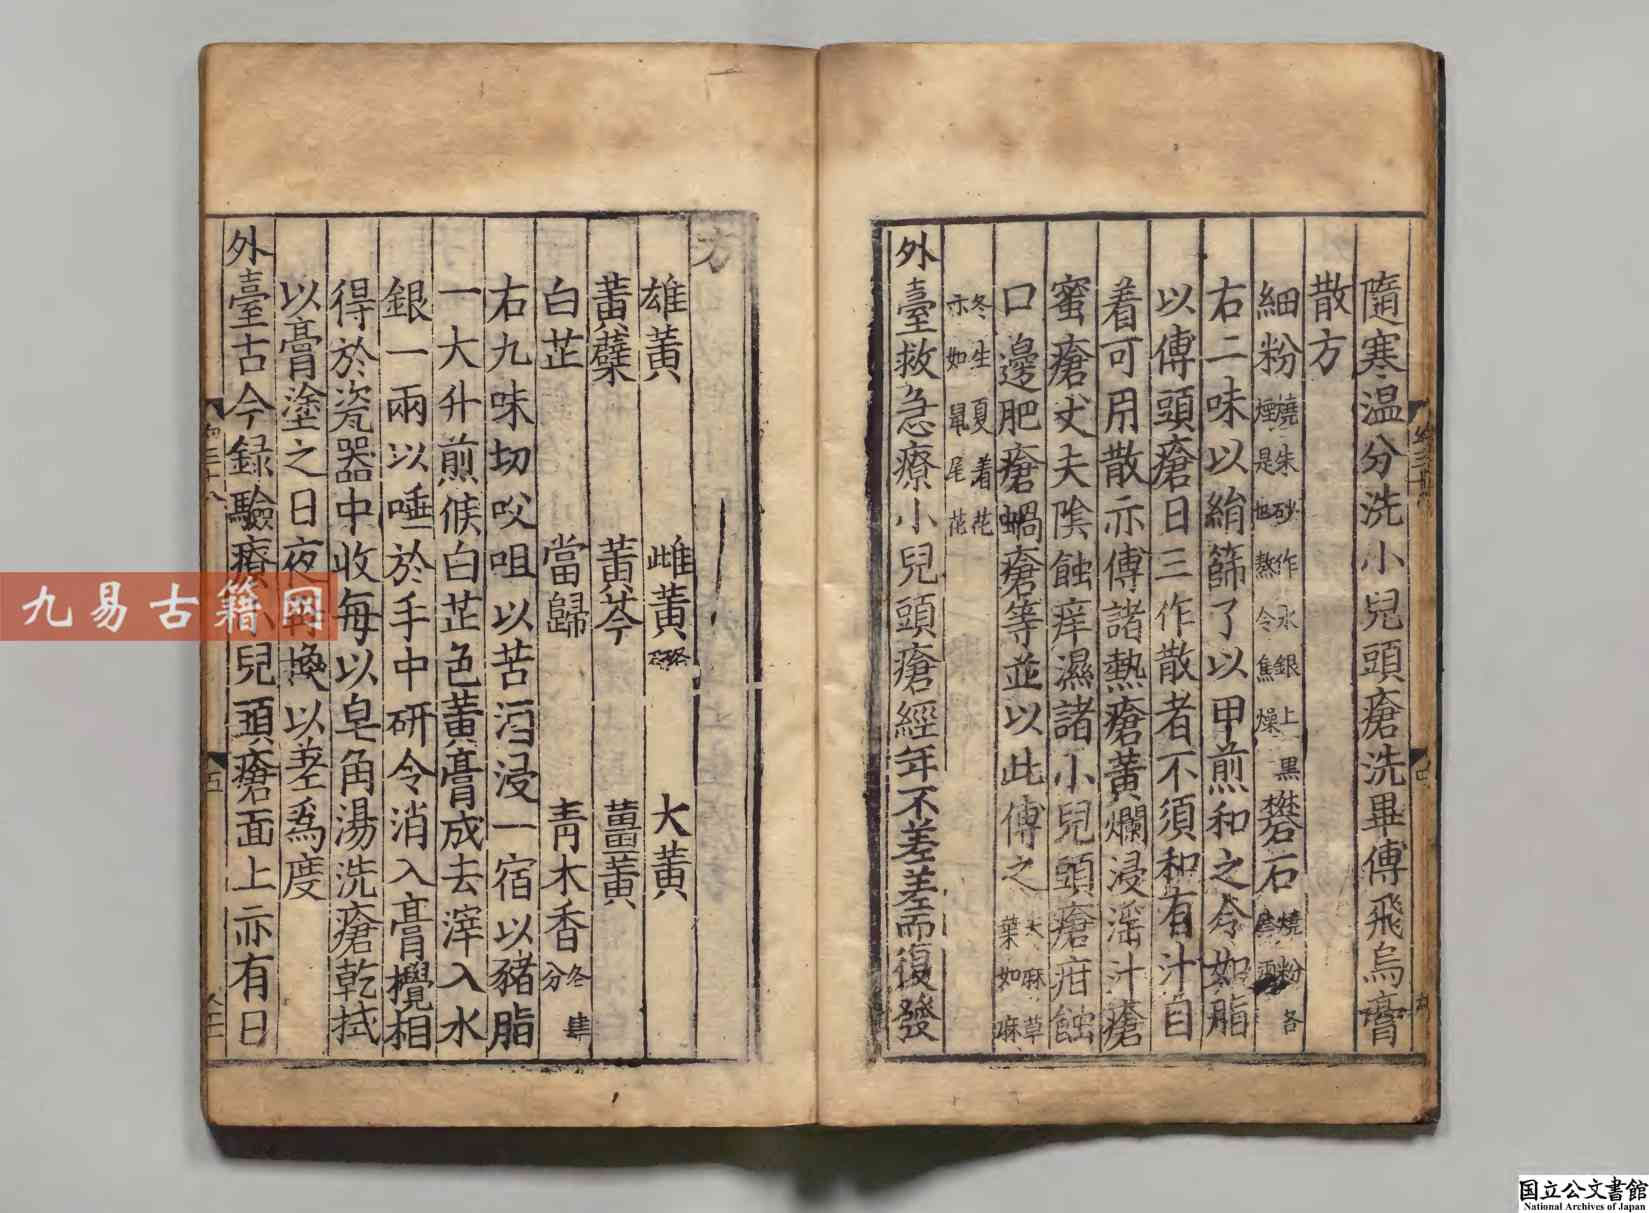 隨寒温分洗小兒頭瘡洗畢傅飛烏膏
散方
細粉燒朱砂作水銀上黑煙是也熬令焦燥礬石燒粉各
右二味以絹篩了以甲煎和之令如脂
以傅頭瘡日三作散者不須和有汁自
着可用散亦傅諸熱瘡黃爛浸淫汁瘡
蜜瘡丈夫隂蝕痒濕諸小兒頭瘡疳蝕
口邊肥瘡蝸瘡等並以此傅之天麻草葉如麻
冬生夏着花亦如鼠尾花
外臺救急療小兒頭瘡經年不差差而復發
方
雄黃 雌黃 大黃
黃蘗 黃芩 薑黃
白芷 當歸 青木香各肆分
右九味切㕮咀以苦酒浸一宿以豬脂
一大升煎候白芷色黃膏成去滓入水
銀一兩以唾於手中研令消入膏攪相
得於瓷器中收每以皂角湯洗瘡乾拭
以膏塗之日夜再換以差為度
外臺古今録驗療小兒頭瘡面上亦有日
五
九易古籍网
国立公文書館
National Archives of Japan